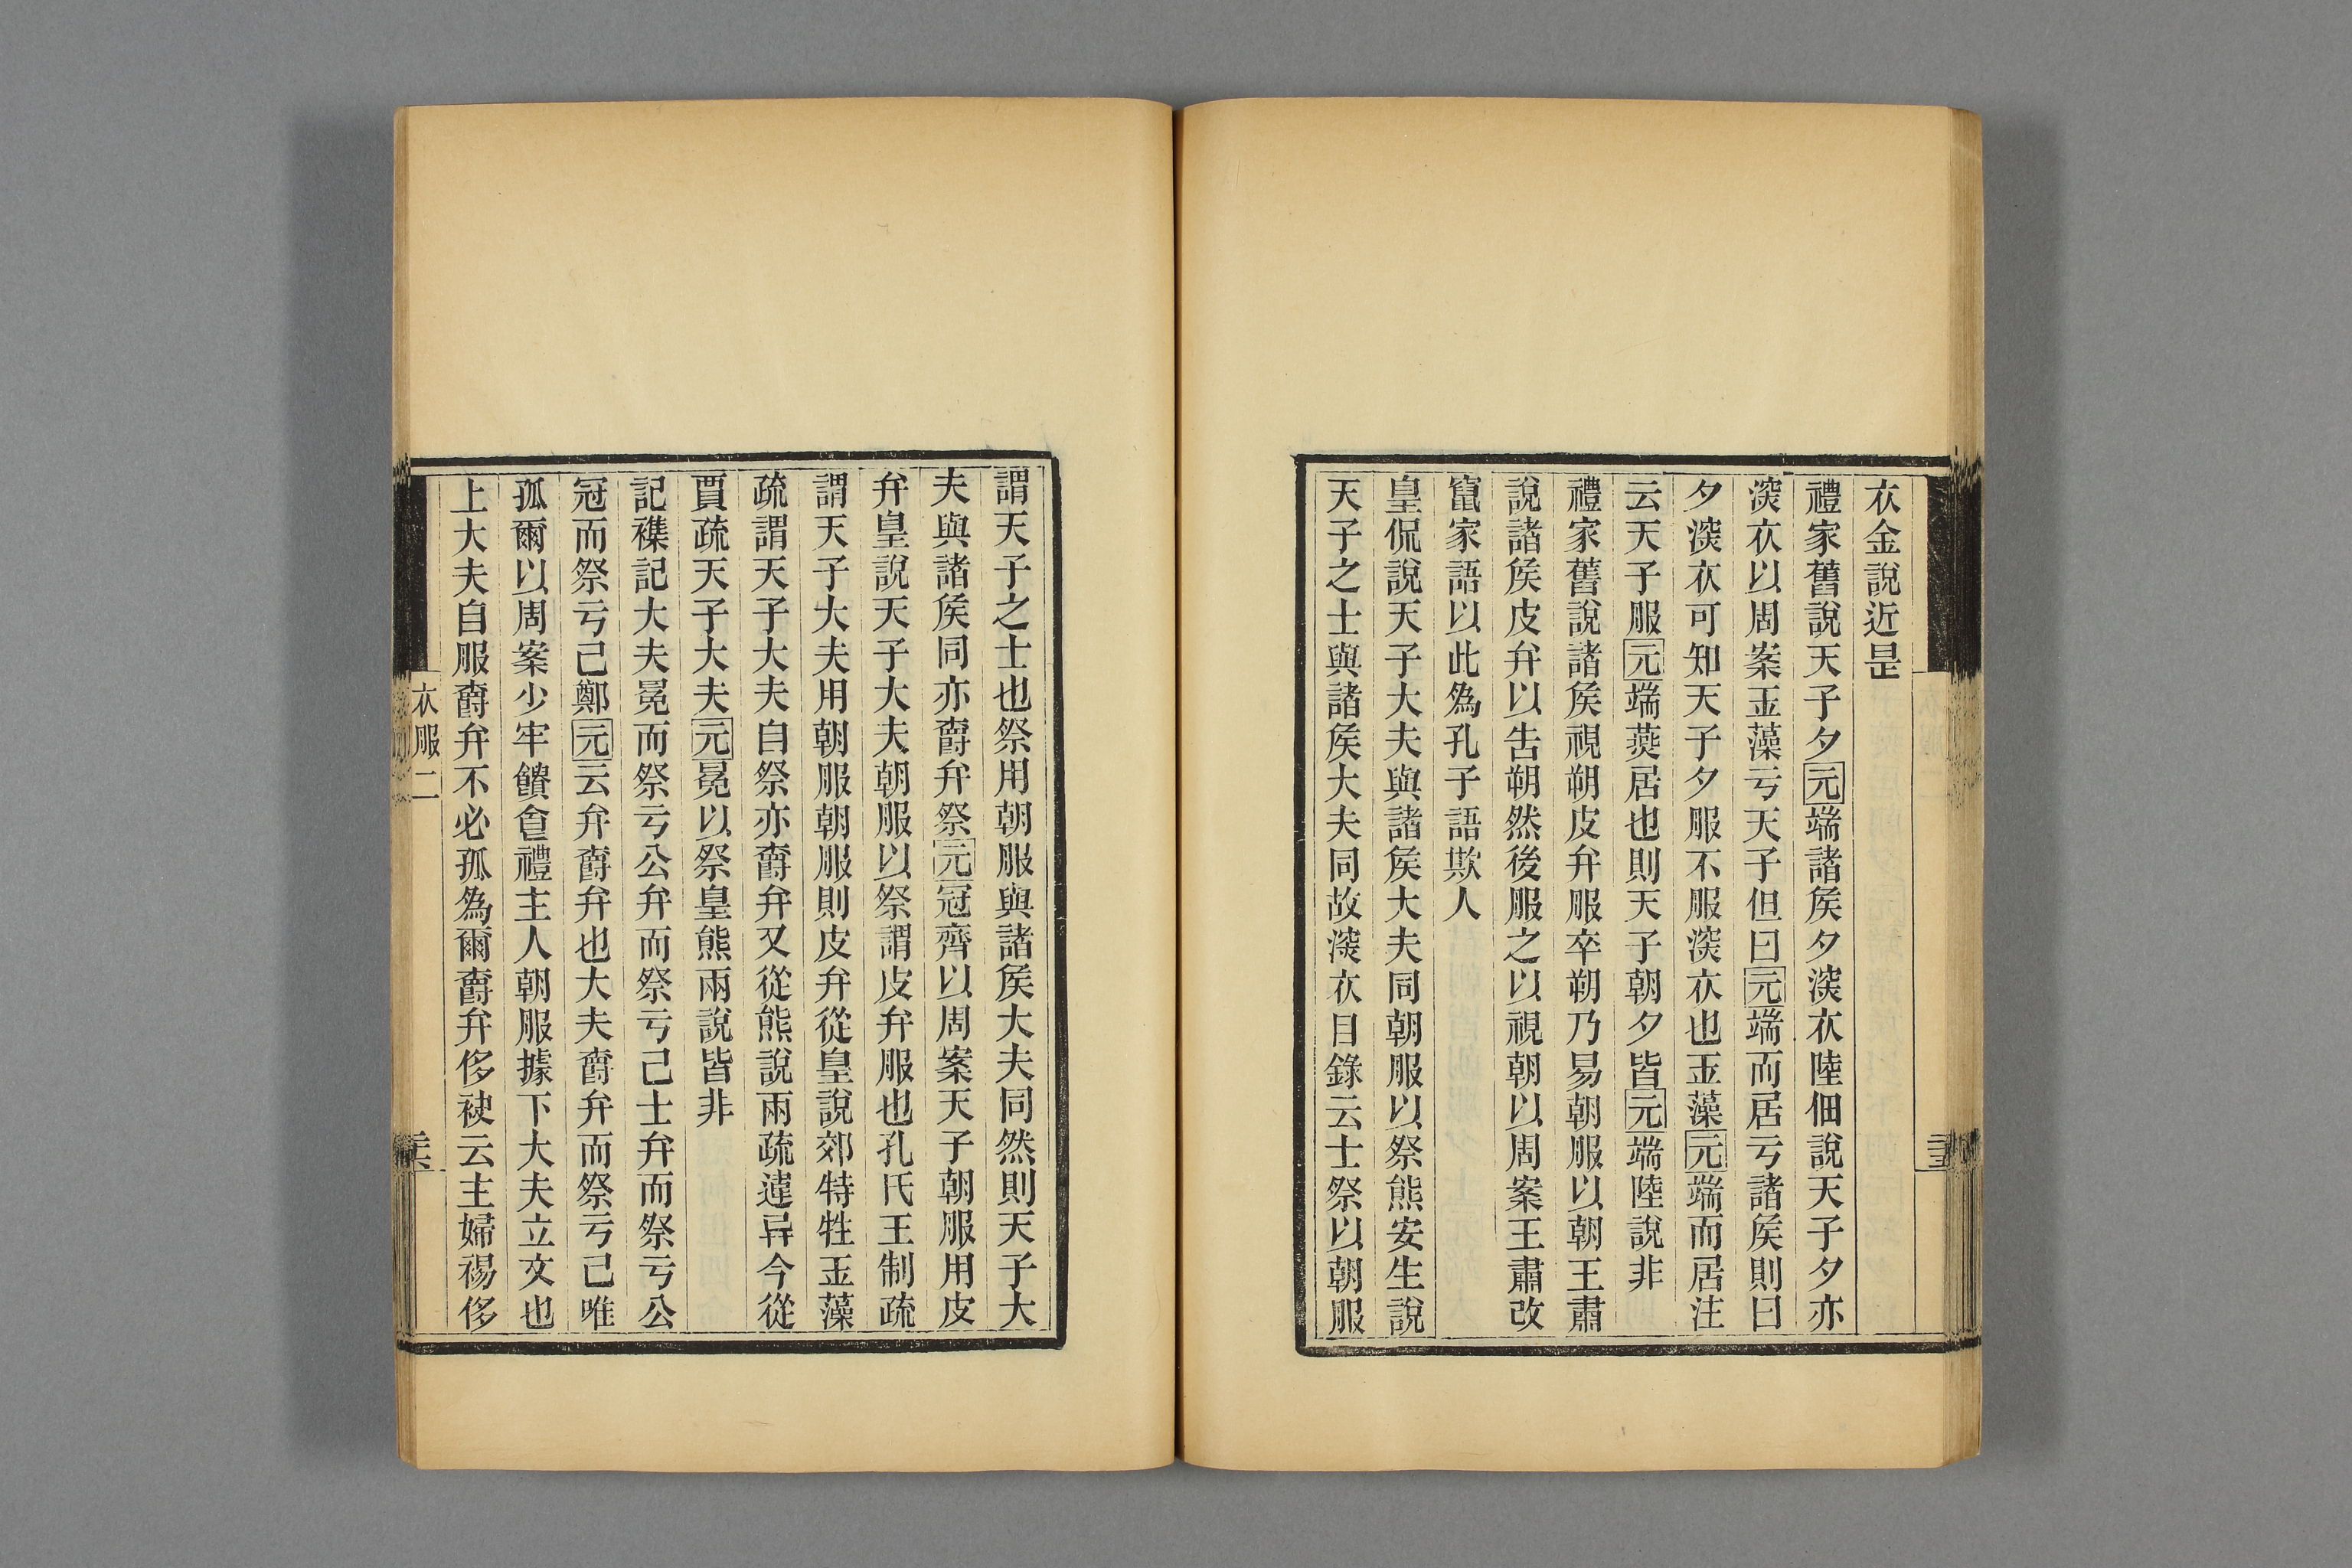 衣金說近是
禮家舊說天子夕元端諸矦夕㴱衣陸佃說天子夕亦
㴱衣以周案玉藻亏天子但曰元端而居亏諸矦則曰
夕㴱衣可知天子夕服不服㴱衣也玉藻元端而居注
云天子服元端燕居也則天子朝夕皆元端陸說非
禮家舊說諸矦視朔皮弁服卒朔乃易朝服以朝王肅
說諸矦皮弁以告朔然後服之以視朝以周案王肅改
竄家語以此爲孔子語欺人
皇侃說天子大夫與諸矦大夫同朝服以祭熊安生說
天子之士與諸矦大夫同故㴱衣目錄云士祭以朝服
謂天子之士也祭用朝服與諸矦大夫同然則天子大
夫與諸矦同亦爵弁祭元冠齊以周案天子朝服用皮
弁皇說天子大夫朝服以祭謂皮弁服也孔氏王制疏
謂天子大夫用朝服朝服則皮弁從皇說郊特牲玉藻
疏謂天子大夫自祭亦爵弁又從熊說兩疏違异今從
賈疏天子大夫元冕以祭皇熊兩說皆非
記襍記大夫冕而祭亏公弁而祭亏己士弁而祭亏公
冠而祭亏己鄭元云弁爵弁也大夫爵弁而祭亏己唯
孤爾以周案少牢饋食禮主人朝服據下大夫立文也
上大夫自服爵弁不必孤爲爾爵弁侈袂云主婦裼侈
衣服二